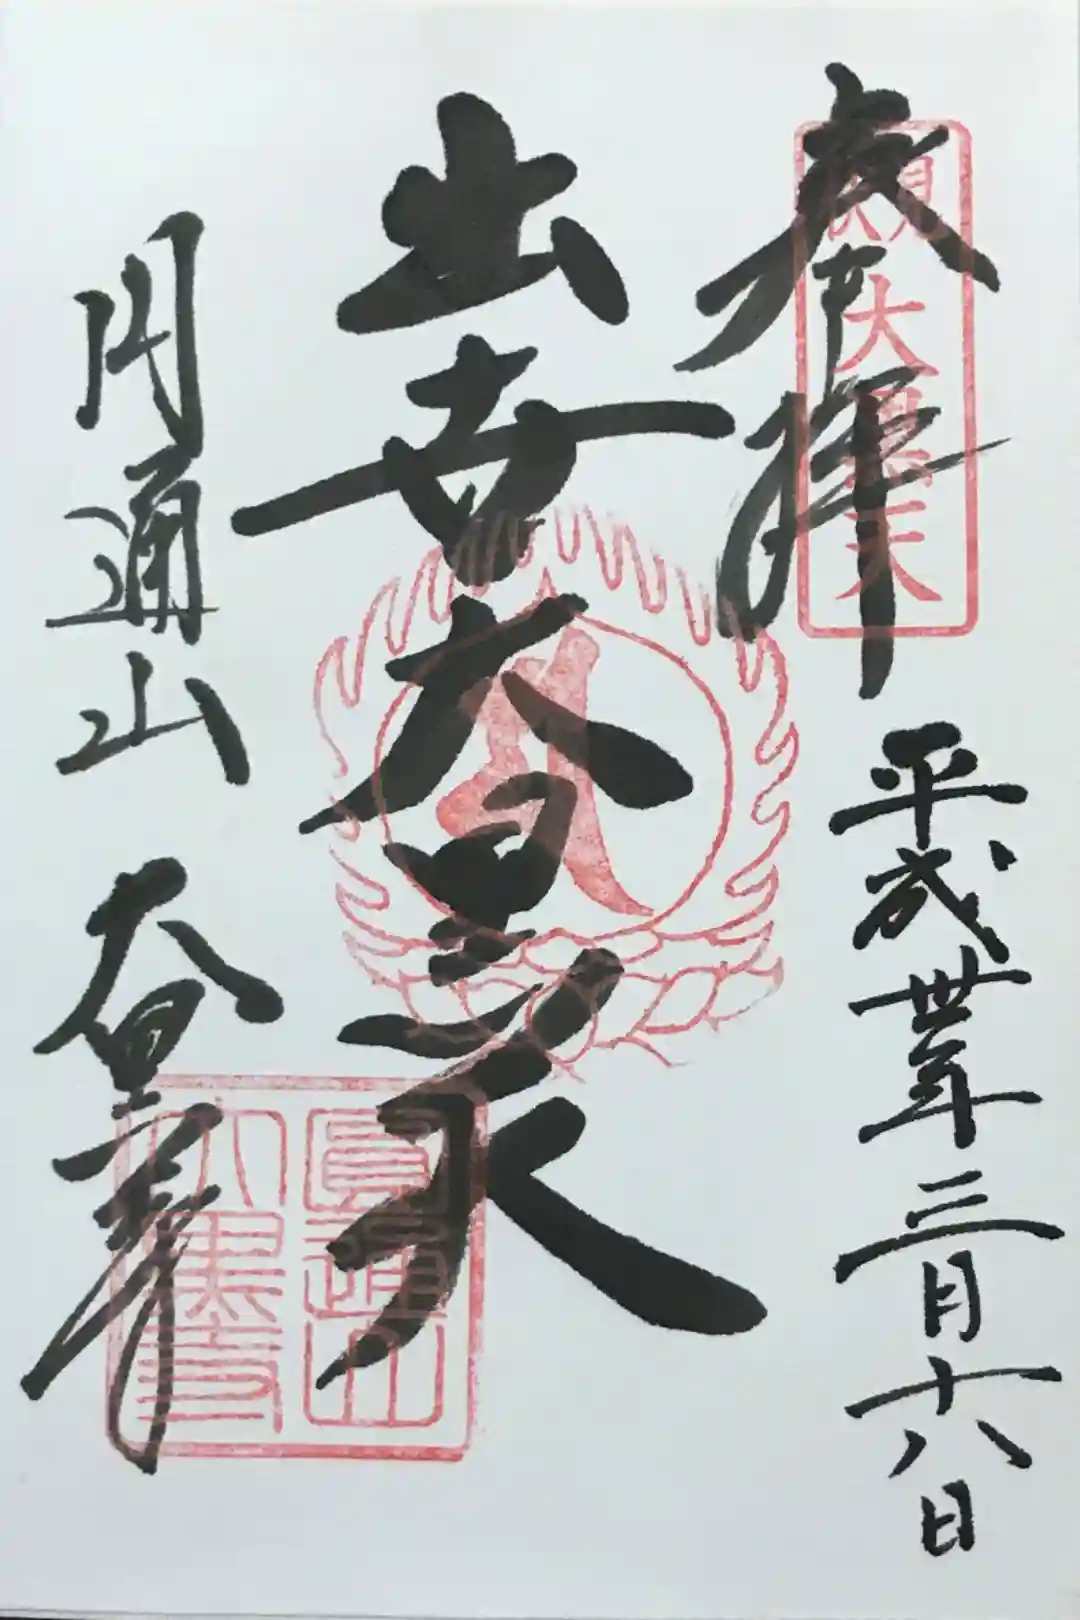 奉拝
平成卅年三月十八日
出世大黒天
円通山 大黒寺
大黒天
圓通山
大黒寺